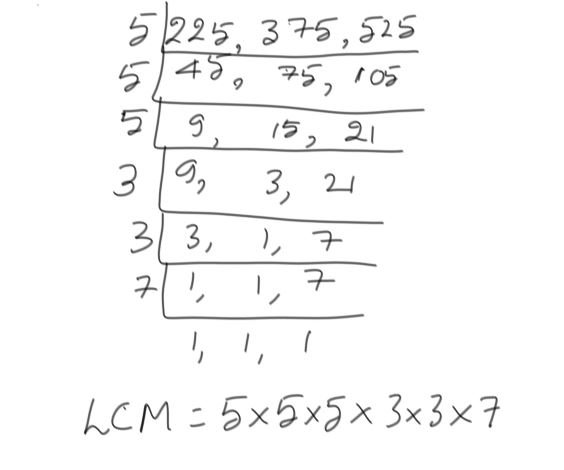 5 225, 375, 525
5 45, 75, 105
5 9, 15, 21
3 9, 3, 21
3 3, 1, 7
7 1, 1, 7
1, 1, 1
LCM = 5×5×5×3×3×7